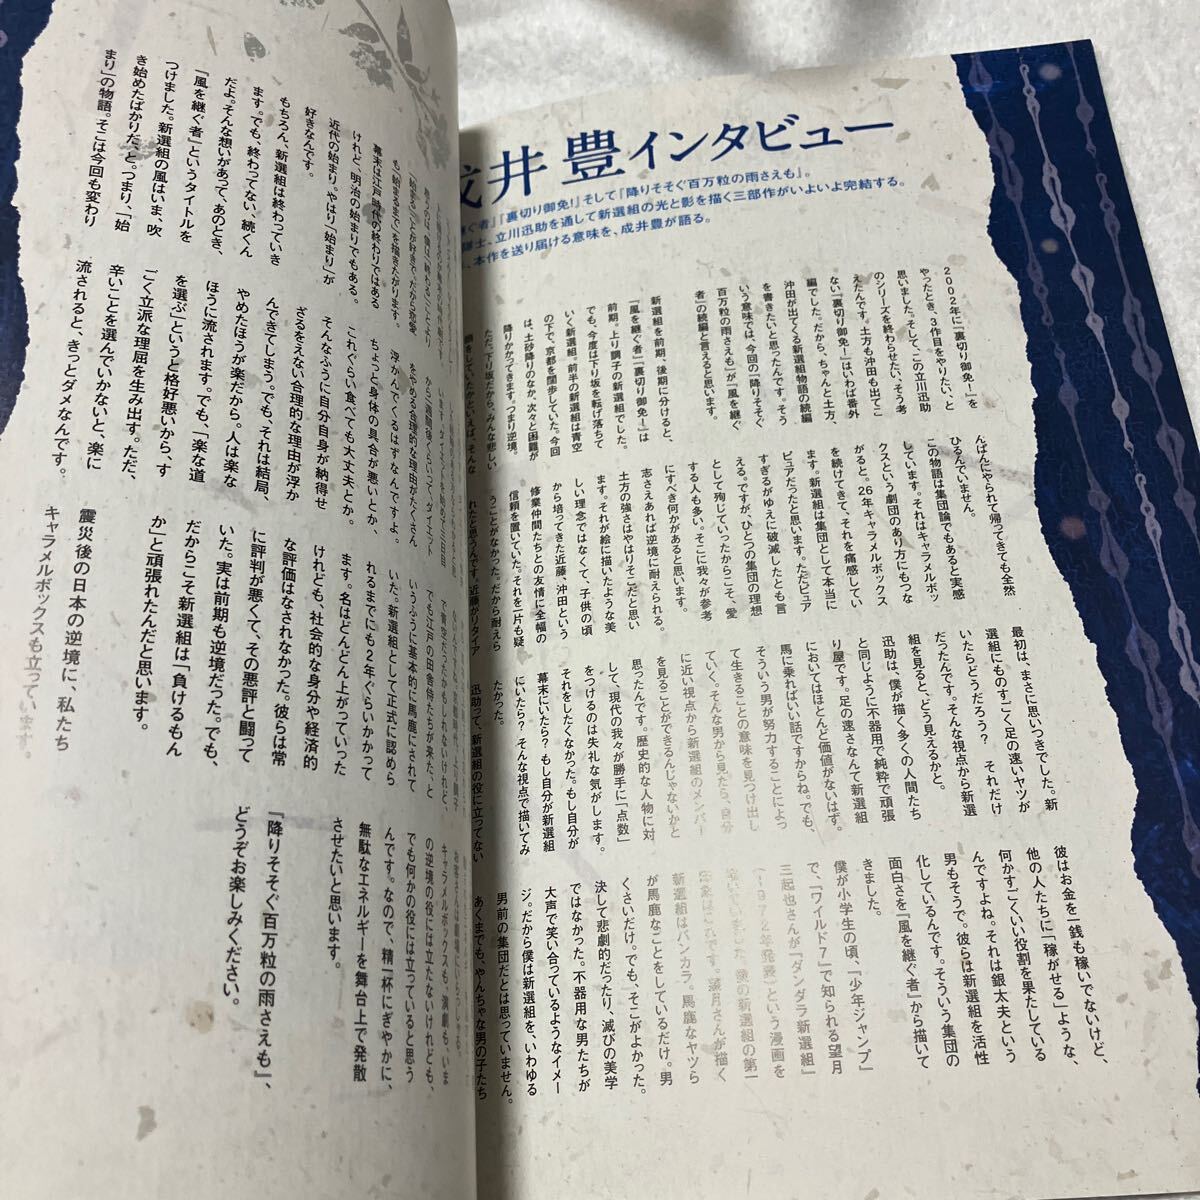 井 豊インタビュー
ぐ者」「裏切り御免!」そして「降りそそぐ百万粒の雨さえも」。
士、立川迅助を通して新選組の光と影を描く三部作がいよいよ完結する。
、本作を送り届ける意味を、成井豊が語る。
2002年に『裏切り御免!』を
やったとき、3作目をやりたい、と
思いました。そして、この立川迅助
のシリーズを終わらせたい、そう考
えたんです。土方も沖田も出てこ
ない『裏切り御免!』はいわば番外
編でした。だから、ちゃんと土方、
沖田が出てくる新選組物語の続編
を書きたいと思ったんです。そう
いう意味では、今回の『降りそそぐ
百万粒の雨さえも』が『風を継ぐ
者』の続編と言えると思います。
新選組を前期、後期に分けると、
『風を継ぐ者』『裏切り御免!』は
前期。上り調子の新選組でした。
でも、今度は下り坂を転げ落ちて
いく新選組。前半の新選組は青空
の下で、京都を闊歩していた。今回
は、土砂降りのなか、次々と困難が
降りかかってきます。つまり逆境。
ただ、下り坂だから、みんな悲しい
顔をしていたかというと、そんな
んばんにやられて帰ってきても全然
ひるんでいません。
この物語は集団論でもあると実感
しています。それはキャラメルボッ
クスという劇団のあり方にもつな
がると。26年キャラメルボックス
を続けてきて、それを痛感してい
ます。新選組は集団として本当に
ピュアだったと思います。ただピュア
すぎるがゆえに破滅したとも言
える。ですが、ひとつの集団の理想
として殉じていったからこそ、愛
する人も多い。そこに我々が参考
にすべき何かがあると思います。
志さえあれば逆境に耐えられる。
土方の強さはやはりそこだと思い
ます。それが絵に描いたような美
しい理念ではなくて、子供の頃
から培ってきた近藤、沖田という
修業仲間たちとの友情に全幅の
信頼を置いていた。それを一片も疑
うことがなかった。だから耐えら
れたと思うんです。近藤がリタイア
最初は、まさに思いつきでした。新
選組にものすごく足の速いヤツが
いたらどうだろう? それだけ
だったんです。そんな視点から新選
組を見ると、どう見えるかと。
迅助は、僕が描く多くの人間たち
と同じように不器用で純粋で頑張
り屋です。足の速さなんて新選組
においてはほとんど価値がないはず。
馬に乗ればいい話ですからね。でも、
そういう男が努力することによっ
て生きることの意味を見つけ出し
ていく。そんな男から見たら、自分
に近い視点から新選組のメンバー
を見ることができるんじゃないかと
思ったんです。歴史的な人物に対
して、現代の我々が勝手に「点数」
をつけるのは失礼な気がします。
それをしたくなかった。もし自分が
幕末にいたら? もし自分が新選組
にいたら? そんな視点で描いてみ
たかった。
迅助って、新選組の役に立ってない
彼はお金を一銭も稼いでないけど、
他の人たちに「稼がせる」ような、
何かすごくいい役割を果たしている
んですよね。それは銀太夫という
男もそうで。彼らは新選組を活性
化しているんです。そういう集団の
面白さを『風を継ぐ者』から描いて
きました。
僕が小学生の頃、『少年ジャンプ』
で、『ワイルド7』で知られる望月
三起也さんが『ダンダラ新選組』
(1972年発表)という漫画を
描いていました。僕の新選組の第一
印象はこれです。望月さんが描く
新選組はバンカラ。馬鹿なヤツら
が馬鹿なことをしているだけ。男
くさいだけ。でも、そこがよかった。
決して悲劇的だったり、滅びの美学
ではなかった。不器用な男たちが
大声で笑い合っているようなイメー
ジ。だから僕は新選組を、いわゆる
男前の集団だとは思っていません。
あくまでも、やんちゃな男の子たち
「始まる」ことが好きで。だから恋愛
も「始まるまで」を描きたがります。
幕末は江戸時代の終わりではある
けれど、明治の始まりでもある。
近代の始まり。やはり「始まり」が
好きなんです。
もちろん、新選組は終わっていき
ます。でも、終わってない、続くん
だよ。そんな想いがあって、あのとき、
『風を継ぐ者』というタイトルを
つけました。新選組の風はいま、吹
き始めたばかりだ、と。つまり、「始
まり」の物語。そこは今回も変わり
います。ダイエットを始めて三日目
から一週間後くらいって、ダイエット
をやめる合理的な理由がたくさん
浮かんでくるはずなんですよ。
ちょっと身体の具合が悪いとか、
これぐらい食べても大丈夫とか。
そんなふうに自分自身が納得せ
ざるをえない合理的な理由が浮か
んできてしまう。でも、それは結局、
やめたほうが楽だから。人は楽な
ほうに流されます。でも、「楽な道
を選ぶ」というと格好悪いから、す
ごく立派な理屈を生み出す。ただ、
辛いことを選んでいかないと、楽に
流されると、きっとダメなんです。
で青空だったかもしれないけれど、
でも江戸の田舎侍たちが来た、と
いうふうに基本的に馬鹿にされて
いた。新選組として正式に認めら
れるまでにも2年ぐらいかかって
ます。名はどんどん上がっていった
けれども、社会的な身分や経済的
な評価はなされなかった。彼らは常
に評判が悪くて、その悪評と闘って
いた。実は前期も逆境だった。でも、
だからこそ新選組は「負けるもん
か」と頑張れたんだと思います。
震災後の日本の逆境に、私たち
キャラメルボックスも立っています。
お客さんは劇場にいらっしゃる。
キャラメルボックスも、演劇も、いま
の逆境の役には立たないけれども、
でも何かの役には立っていると思う
んです。なので、精一杯にぎやかに、
無駄なエネルギーを舞台上で発散
させたいと思います。
『降りそそぐ百万粒の雨さえも』、
どうぞお楽しみください。